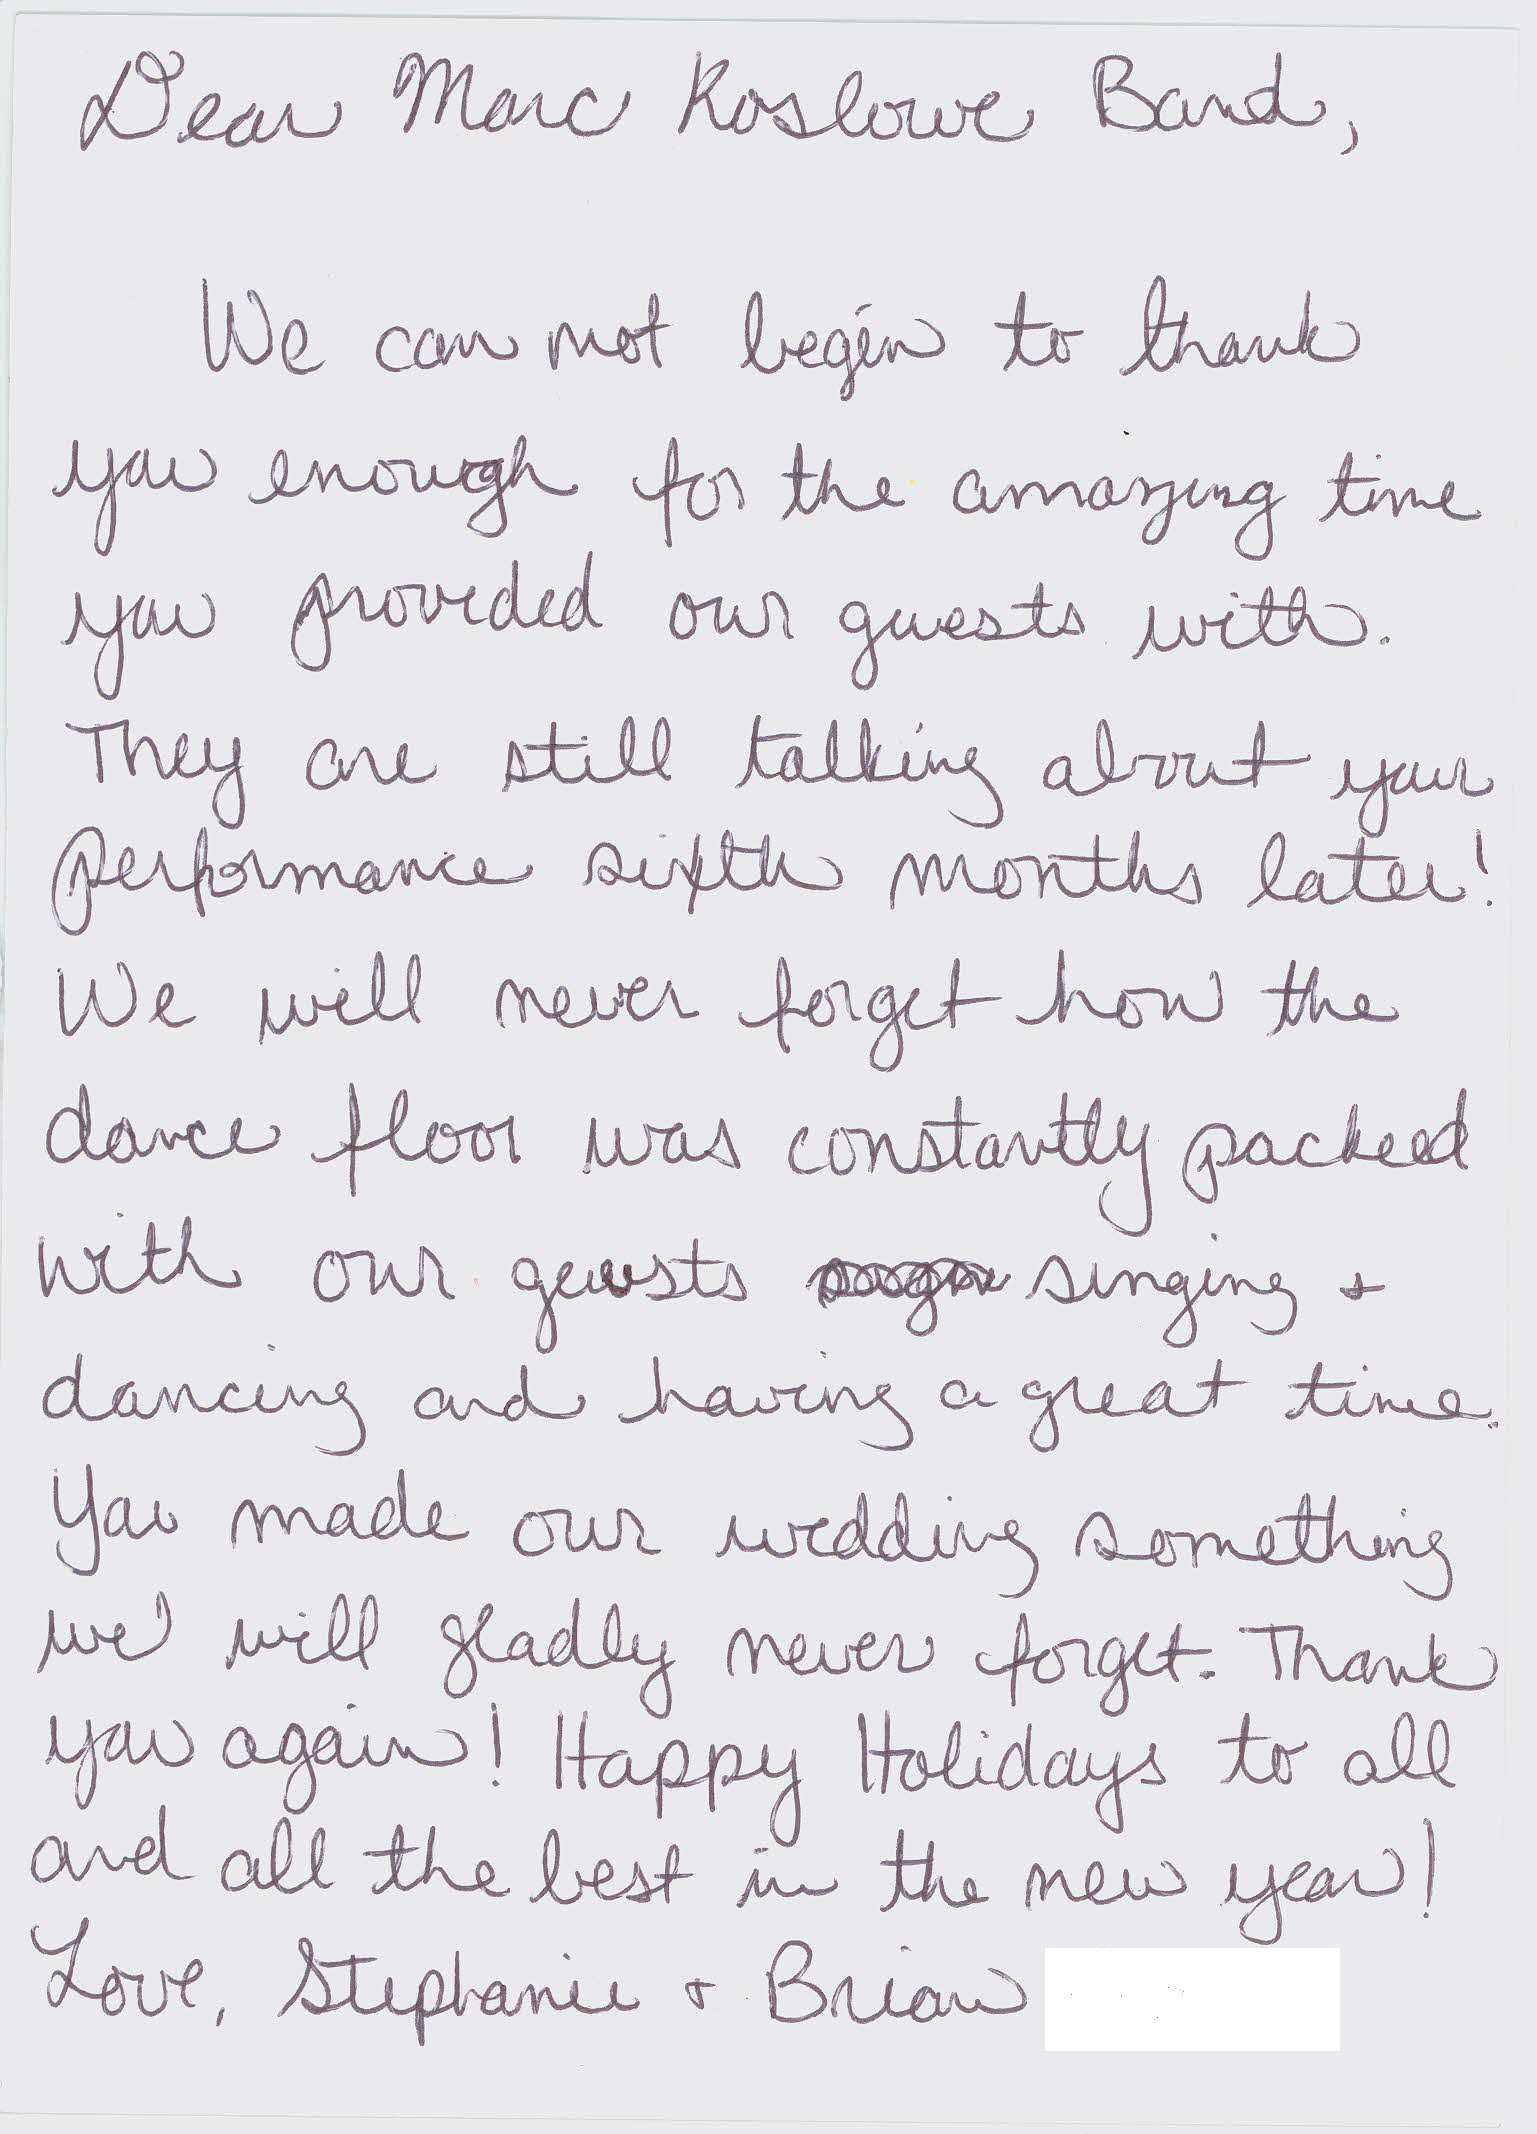 Dear Marc Koslowe Band,
We can not begin to thank
you enough for the amazing time
you provided our guests with.
They are still talking about your
performance sixth months later!
We will never forget how the
dance floor was constantly packed
with our guests singing +
dancing and having a great time.
You made our wedding something
we will gladly never forget. Thank
you again! Happy Holidays to all
and all the best in the new year!
Love, Stephanie + Brian